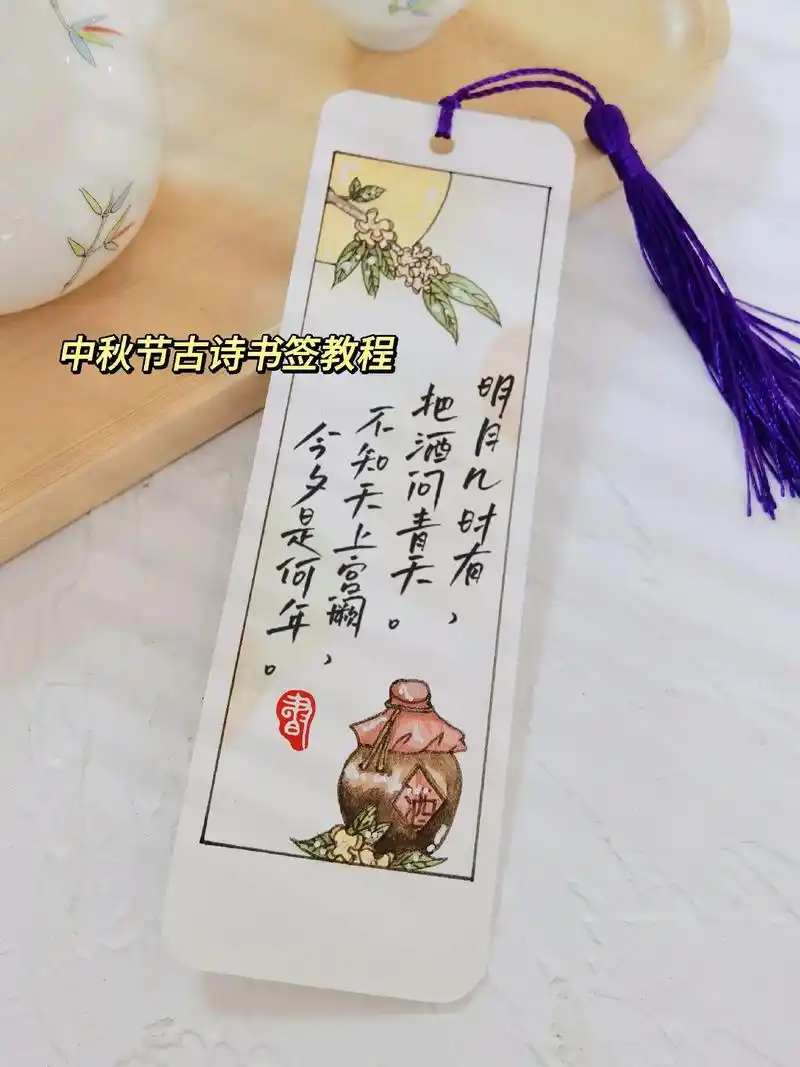 中秋节古诗书签教程
明月几时有，
把酒问青天。
不知天上宫阙，
今夕是何年。
書
酒